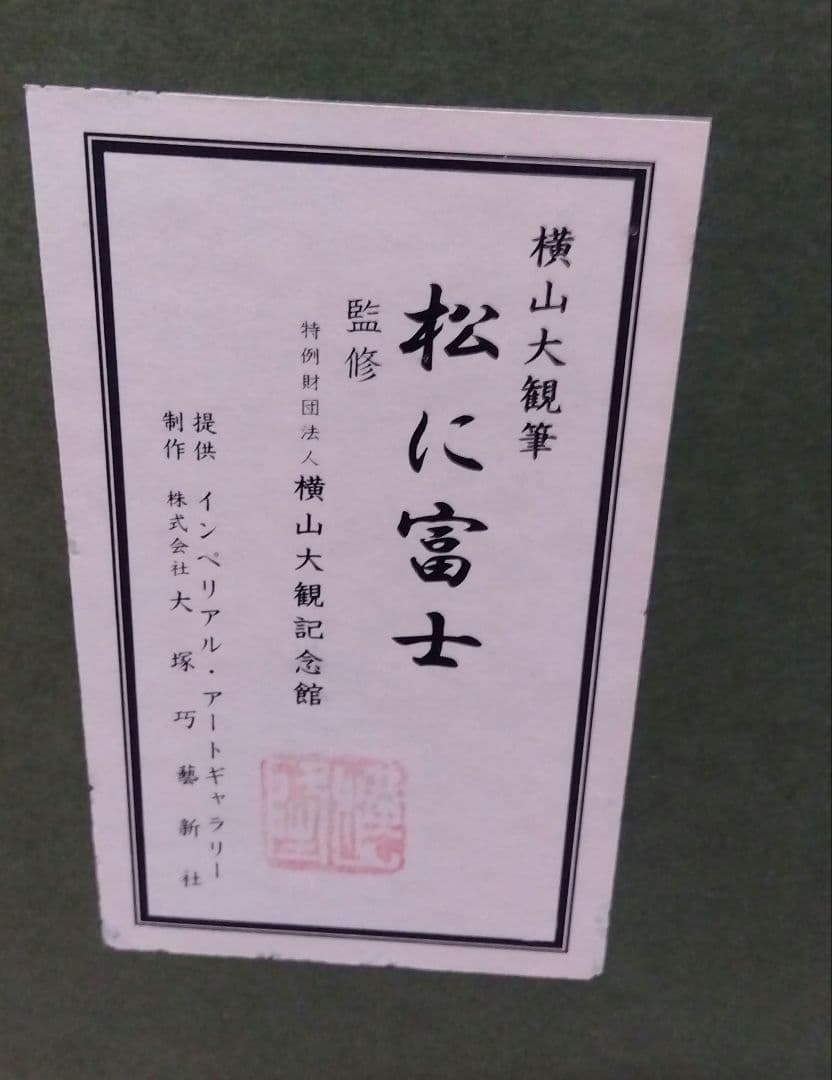 横山大観筆
松に富士
監修
特例財団法人 横山大観記念館
提供 インペリアル・アートギャラリー
制作 株式会社 大塚巧藝新社